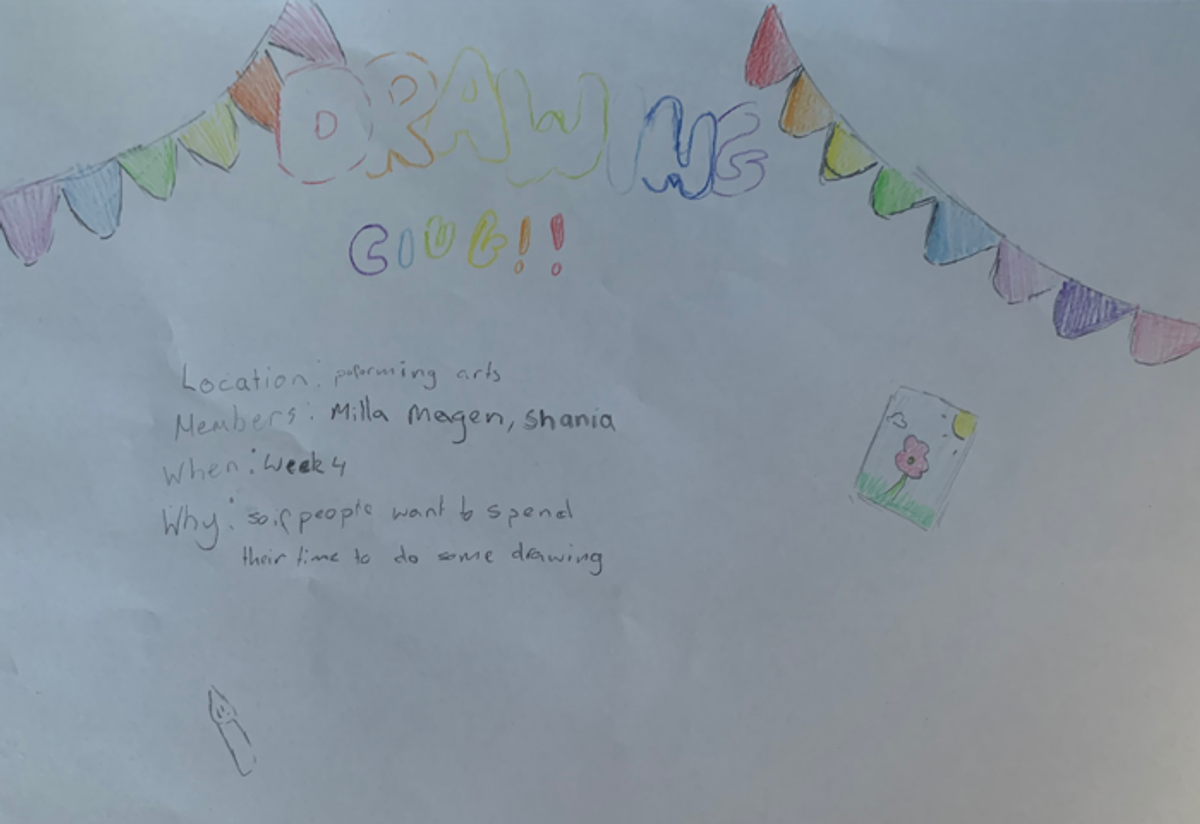 DRAWING
CLUB!!
Location: peforming arts
Members: Milla Megen, Shania
When: Week 4
Why: so if people want to spend
their time to do some drawing